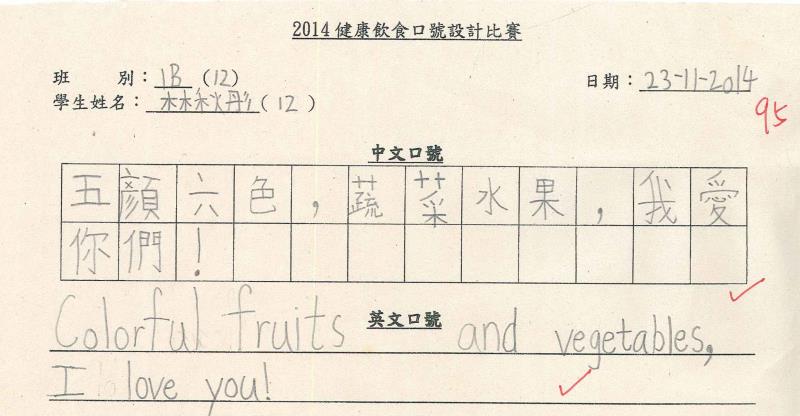 2014 健康飲食口號設計比賽
班 別： 1B (12)
日期： 23-11-2014
學生姓名： 林秋彤 ( 12 )
95
中文口號
五顏六色，蔬菜水果，我愛
你們！
英文口號
Colorful fruits and vegetables,
I love you!